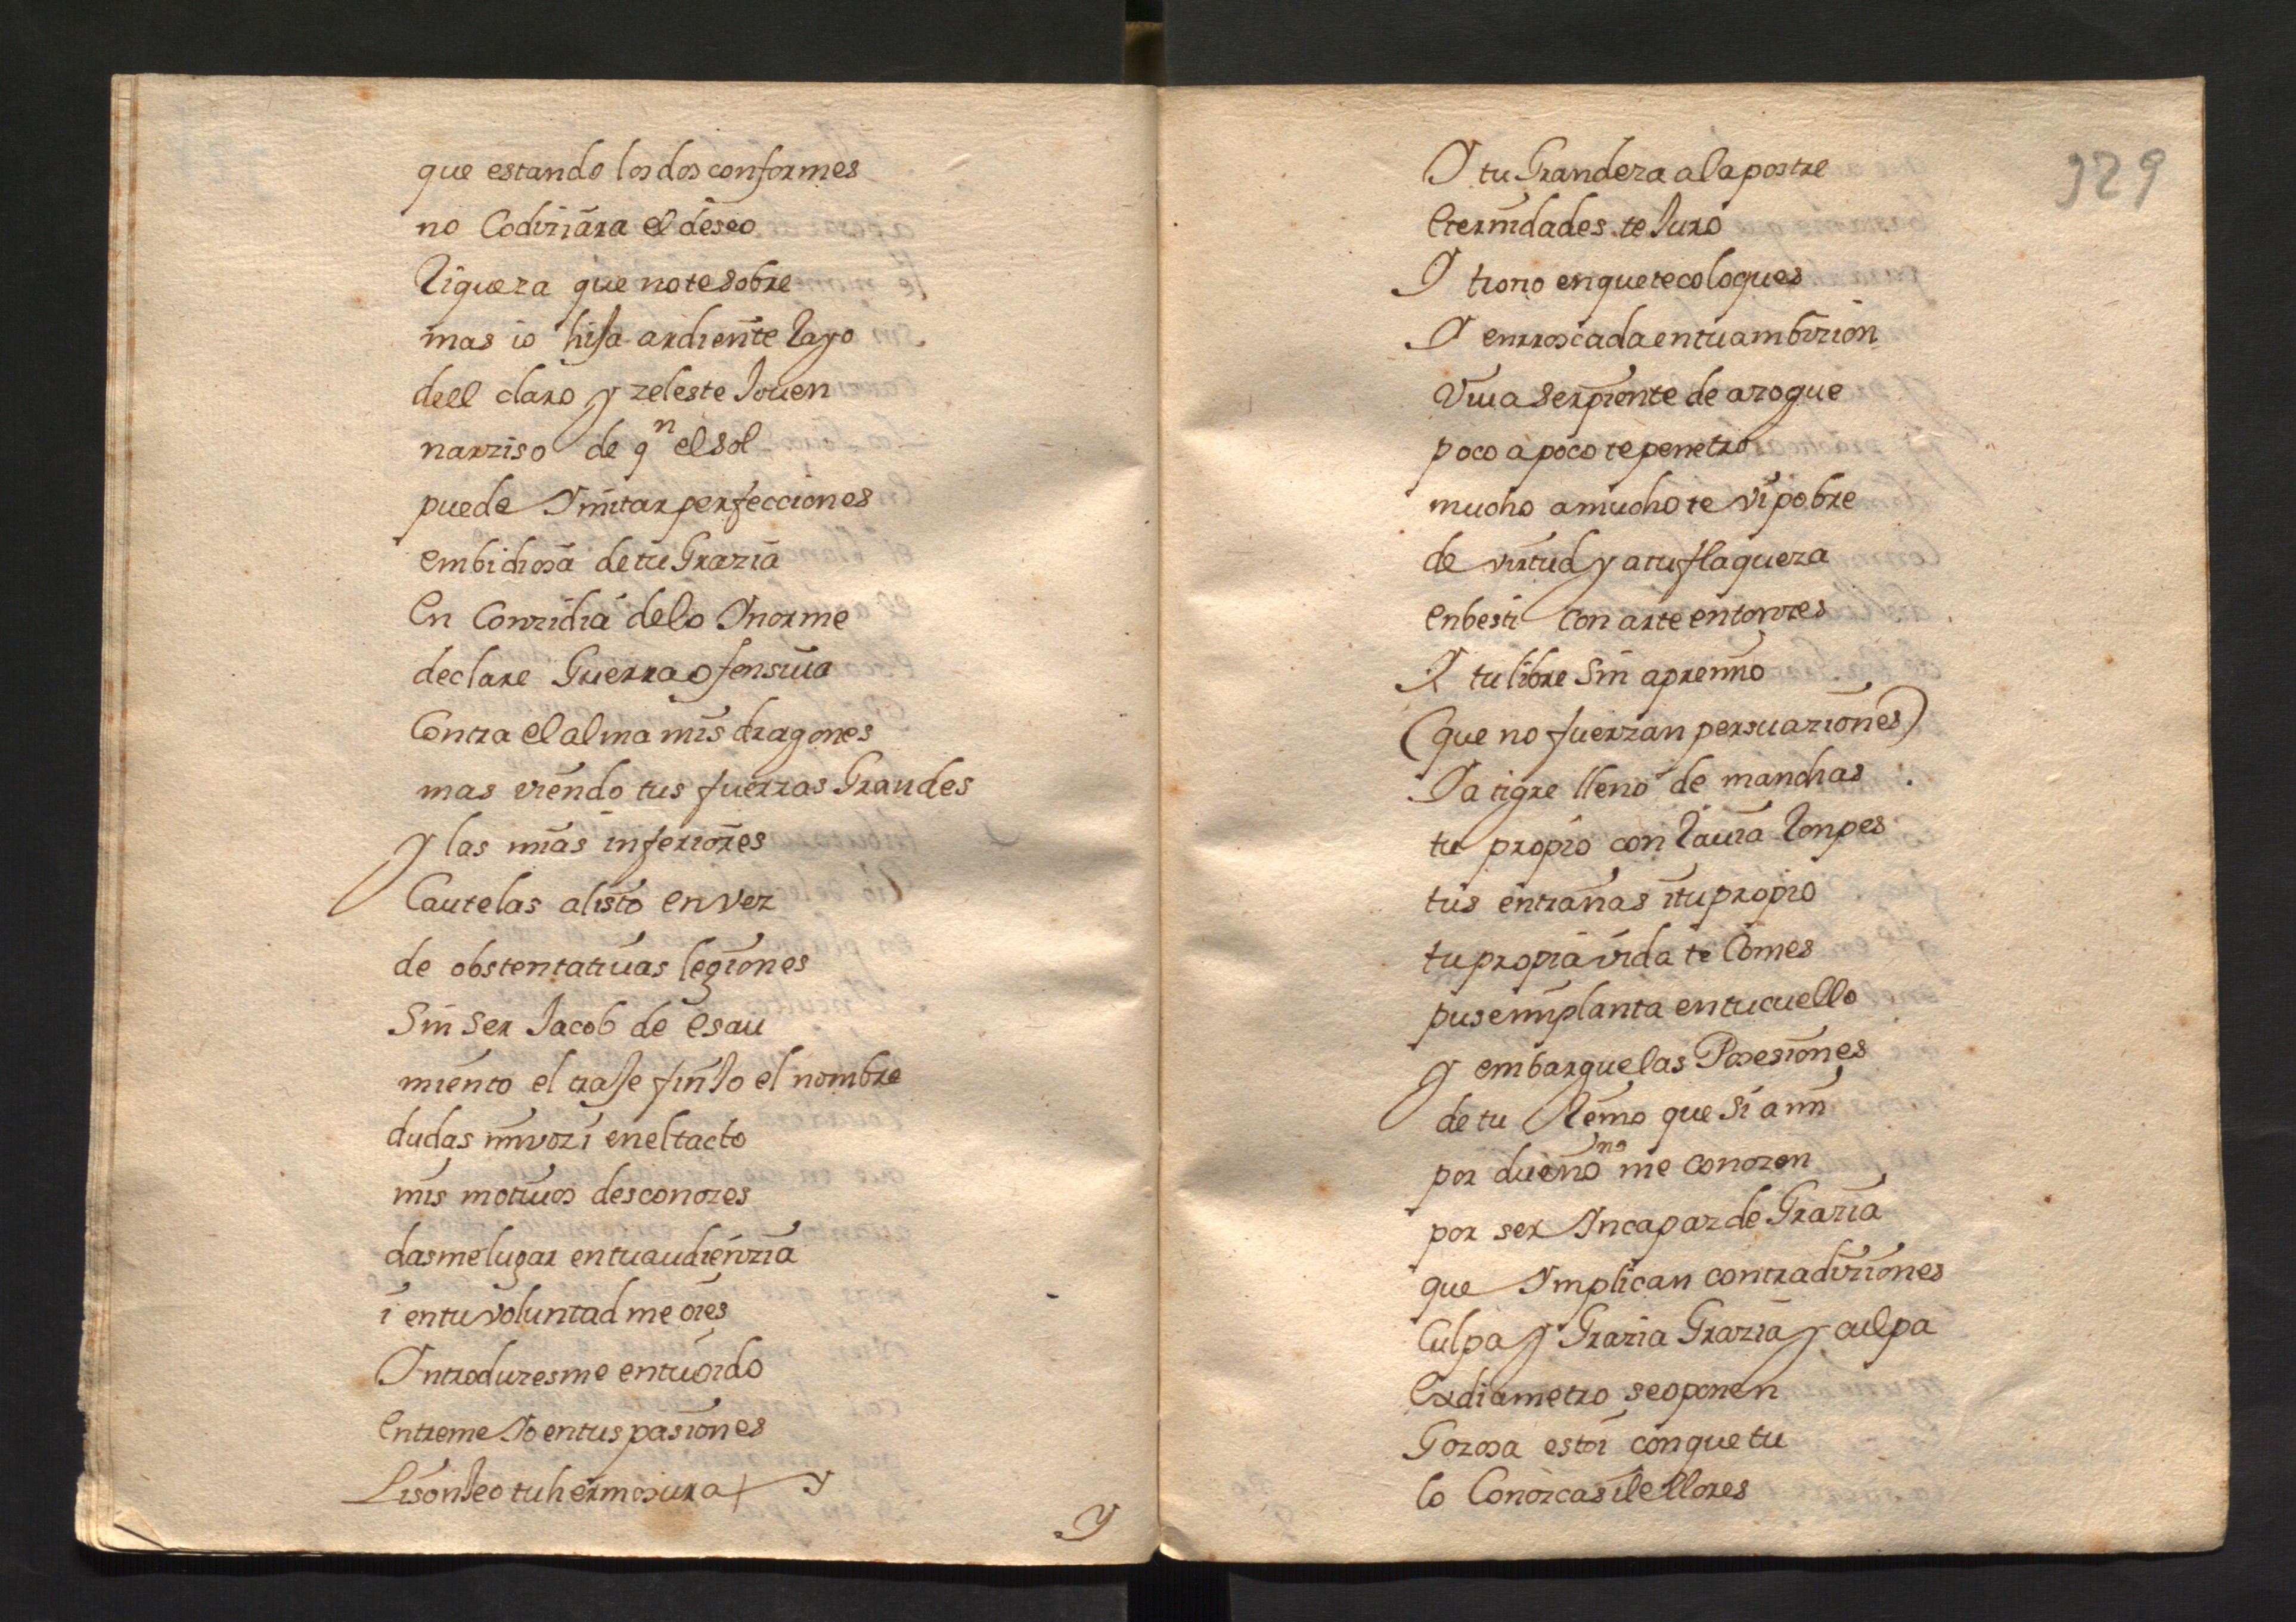 que estando los dos conformes
no Codiziara el deseo
Riqueza que no te sobre
mas io hija ardiente Rayo
dell claro y zeleste Joven
narziso de qn el sol
puede Imitar perfecciones
embidiosa de tu Grazia
En Conzidia de lo Inorme
declare Guerra ofensiua
Contra el alma mis dragones
mas viendo tus fuerzas Grandes
y las mias inferiores
Cautelas alisto en vez
de obstentatiuas legiones
Sin ser Jacob de esau
miento el traje finJo el nombre
dudas mi voz i en el tacto
mis motiuos desconozes
dasme lugar en tu audienzia
i en tu voluntad me oies
Introduzesme en tu oido
Entreme Io en tus pasiones
LisonJeo tu hermosura y
y
329
I tu Grandeza a la postre
Eternidades te Juro
I trono en que te coloques
I enrroscada en tu ambizion
Viua serpiente de azogue
poco a poco te penetro
mucho a mucho te vi pobre
de virtud y a tu flaqueza
enbesti Con arte entonzes
I tu libre sin apremio
(que no fuerzan persuaziones)
Ia tigre lleno de manchas
tu propio con Rauia Ronpes
tus entrañas i tu propio
tu propia vida te Comes
puse mi planta en tu cuello
y embargue las Posesiones
de tu Reino que si a mi
por dueño no me conozen
por ser Incapaz de Grazia
que Implican contradiziones
Culpa y Grazia Grazia y culpa
Exdiametro se oponen
Gozosa estoi con que tu
lo Conozcas i le llores